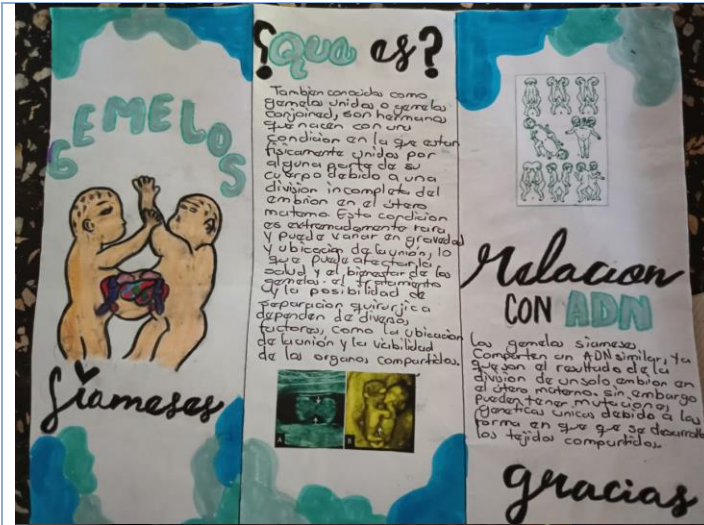 GEMELOS
Siameses
¿Qua es?
Tambien conocidos como
gemelos unidos o gemelos
conjoined, son hermanos
que nacen con una
condicion en la que estan
fisicamente unidos por
alguna parte de su
cuerpo debido a una
division incompleta del
embrion en el útero
materno. Esta condicion
es extremadamente rara
y puede variar en gravedad
y ubicacion de la union, lo
que puede afectar la
salud y el bienestar de los
gemelos. el tratamiento
y la posibilidad de
separacion quirurjica
dependen de diversos
factores, como la ubicacion
de la union y la viabilidad
de los organos compartidos.
A
B
Relacion
CON ADN
Los gemelos siameses
Comparten un ADN similar, ya
que son el resultado de la
division de un solo embrion en
el útero materno. sin embargo
pueden tener mutaciones
geneticas unicas debido a las
forma en que que se desarrolla
los tejidos compartidos
gracias